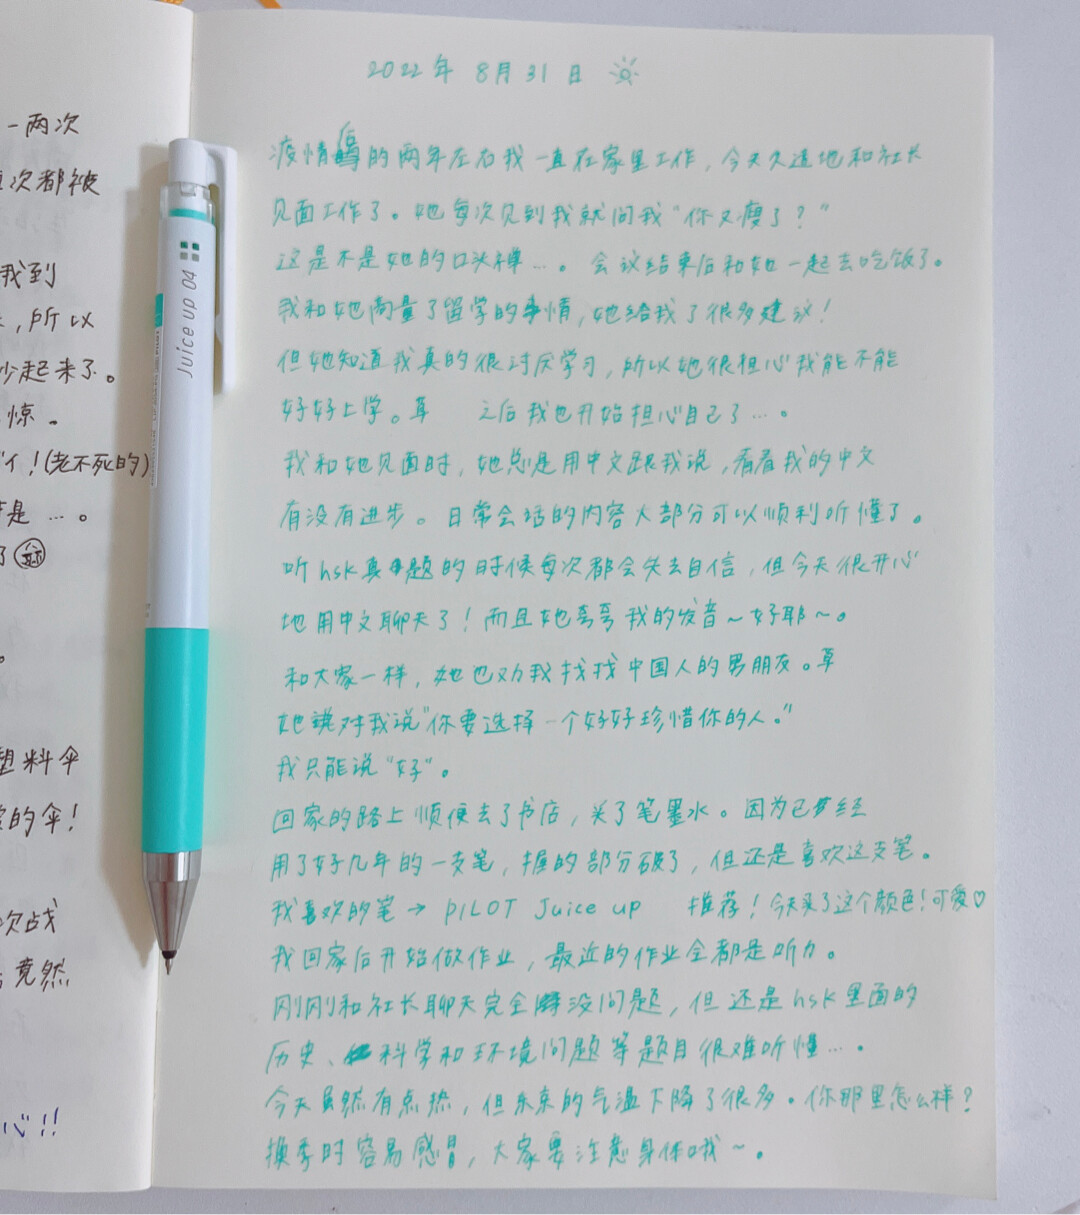 一两次
次都被
我到
,所以
炒起来了。
惊。
イ!(老不死的)
是…。
了
。
塑料伞
的伞!
次战
竟然
心!!
Juice up 04
2022年 8月 31日
疫情的两年左右我一直在家里工作,今天久违地和社长
见面工作了。她每次见到我就问我“你又瘦了?”
这是不是她的口头禅…。会议结束后和她一起去吃饭了。
我和她商量了留学的事情,她给我了很多建议!
但她知道我真的很讨厌学习,所以她很担心我能不能
好好上学。草 之后我也开始担心自己了…。
我和她见面时,她总是用中文跟我说,看看我的中文
有没有进步。日常会话的内容大部分可以顺利听懂了。
听hsk真题的时候每次都会失去自信,但今天很开心
地用中文聊天了!而且她夸夸我的发音~好耶~。
和大家一样,她也劝我找找中国人的男朋友。草
她对我说“你要选择一个好好珍惜你的人。”
我只能说“好”。
回家的路上顺便去了书店,买了笔墨水。因为已经
用了好几年的一支笔,握的部分破了,但还是喜欢这支笔。
我喜欢的笔→ PILOT Juice up 推荐!今天买了这个颜色!可爱♡
我回家后开始做作业,最近的作业全都是听力。
刚刚和社长聊天完全没问题,但还是hsk里面的
历史、科学和环境问题等题目很难听懂…。
今天虽然有点热,但东京的气温下降了很多。你那里怎么样?
换季时容易感冒,大家要注意身体哦~。